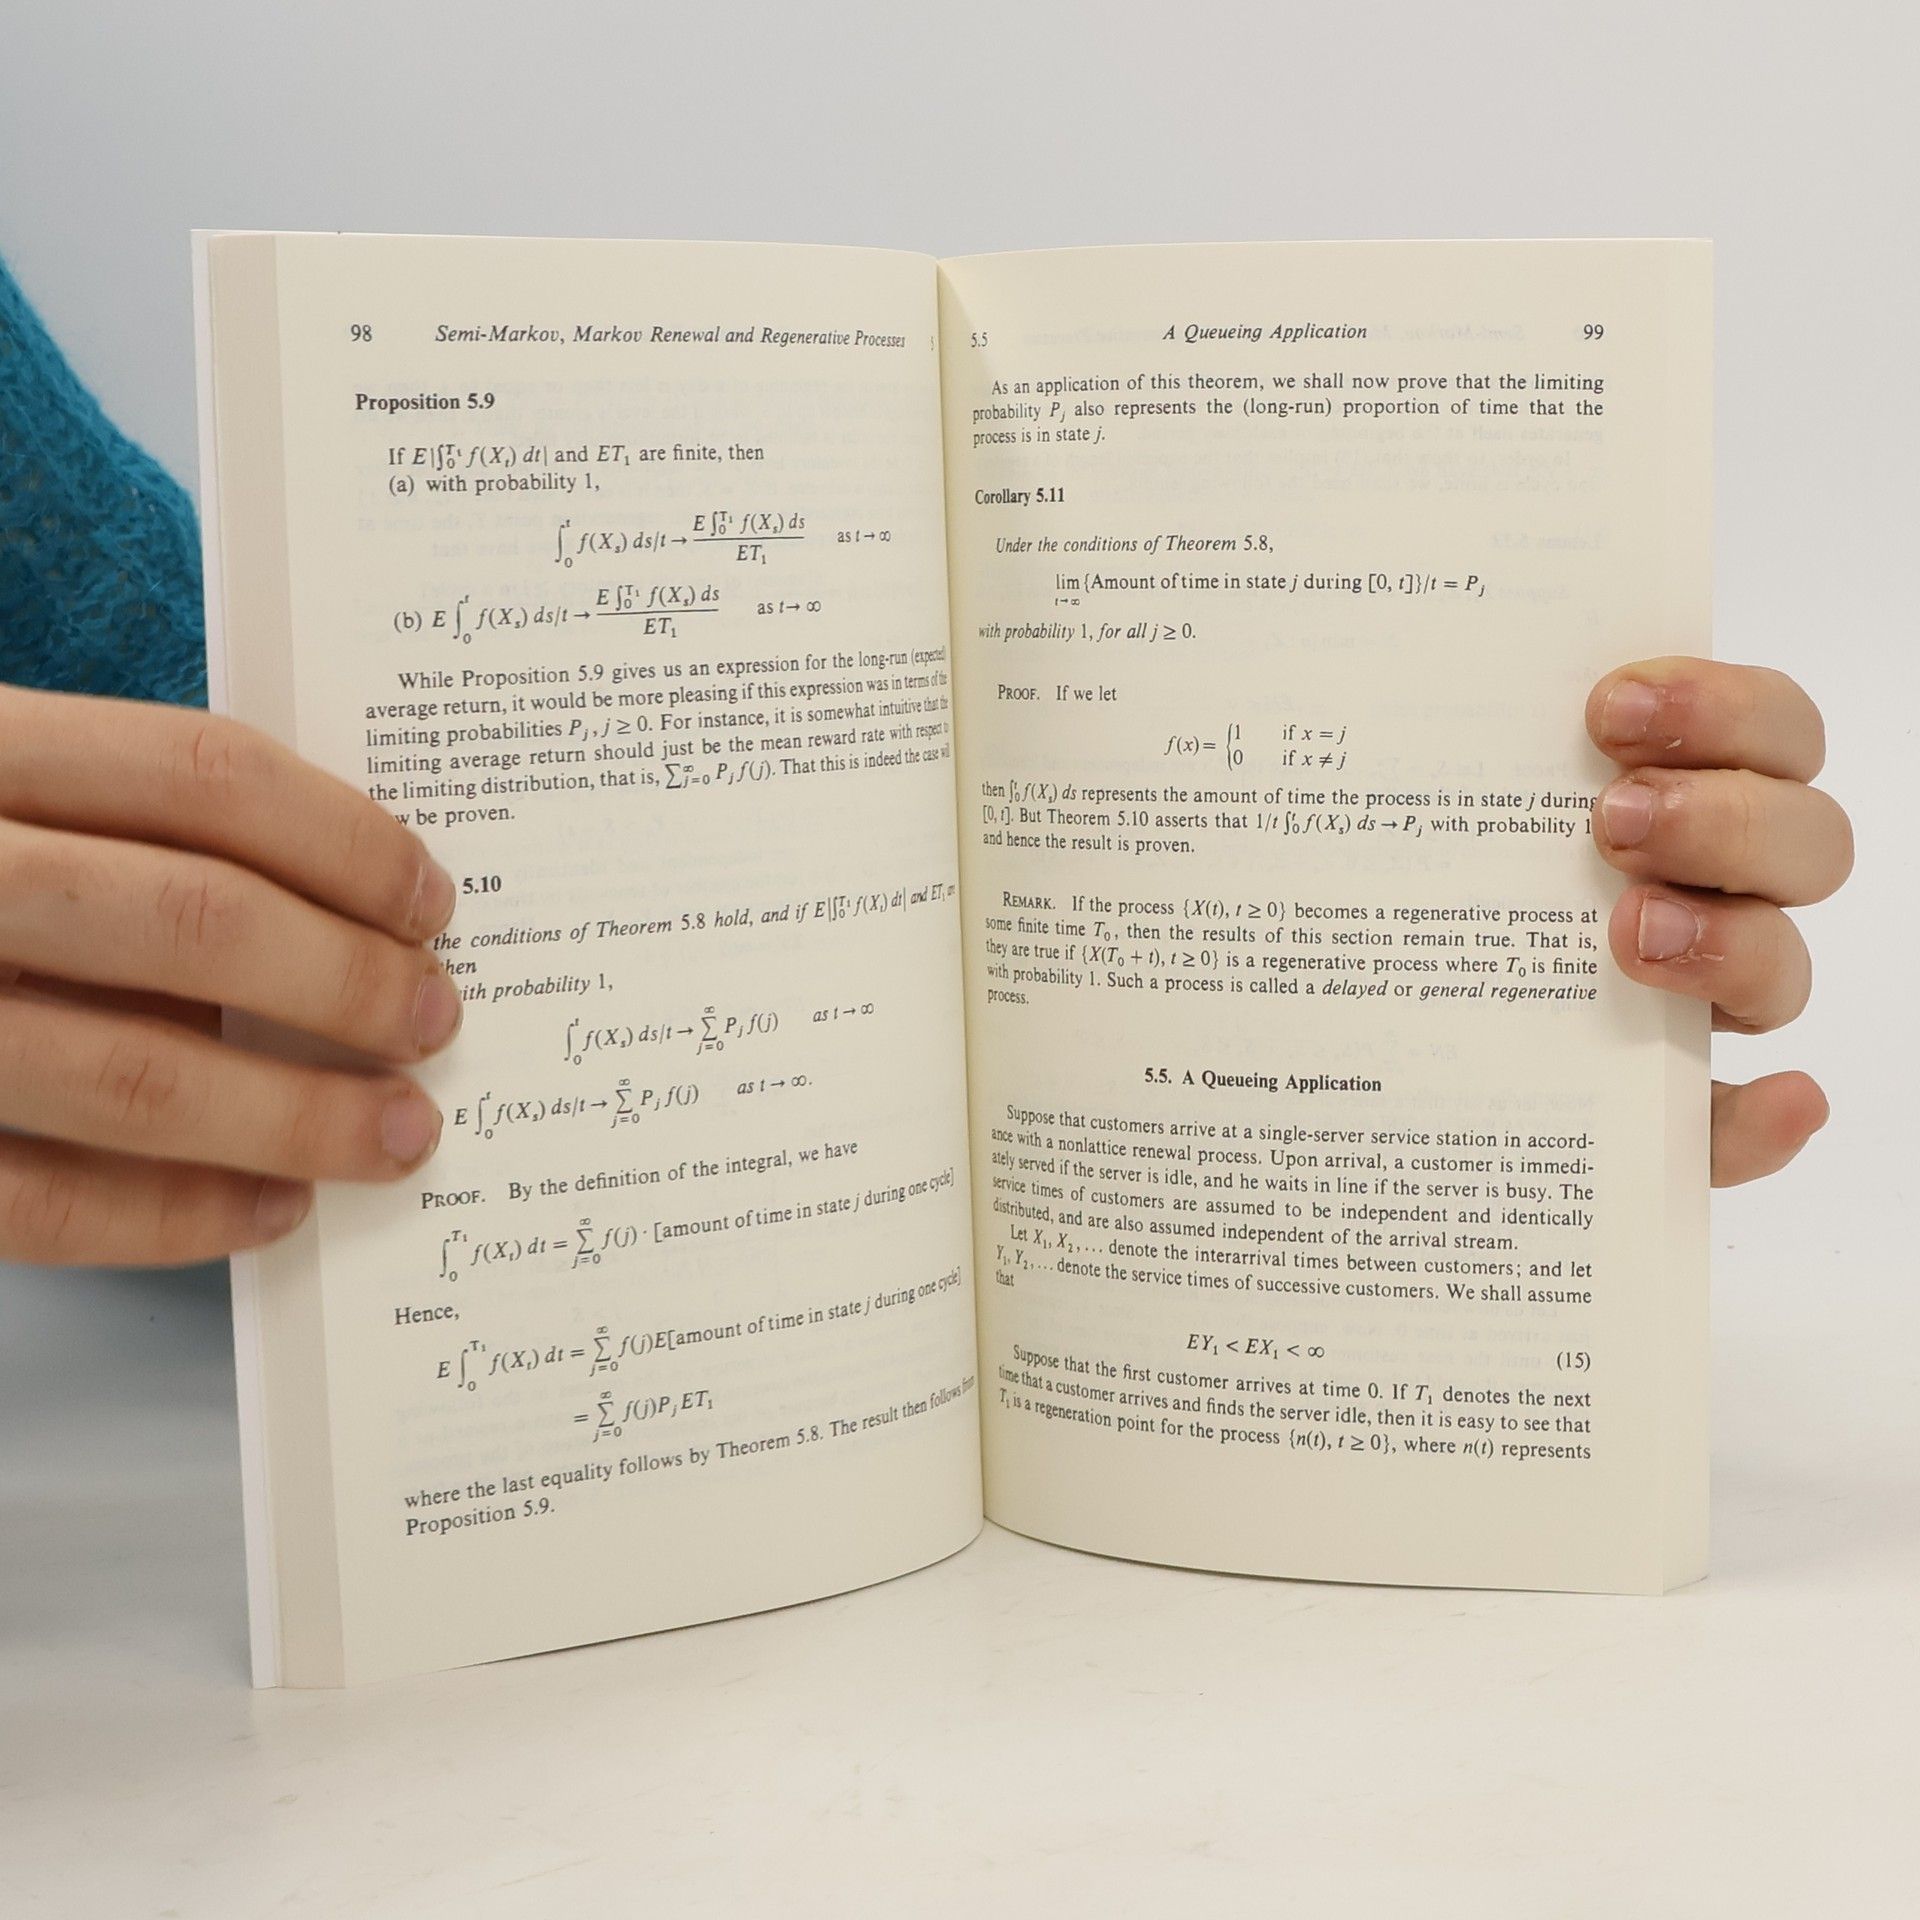 98 Semi-Markov, Markov Renewal and Regenerative Processes
Proposition 5.9
If E|∫₀^{T₁} f(X_t) dt| and ET₁ are finite, then
(a) with probability 1,
∫₀^t f(X_s) ds/t → E ∫₀^{T₁} f(X_s) ds / ET₁ as t → ∞
(b) E ∫₀^t f(X_s) ds/t → E ∫₀^{T₁} f(X_s) ds / ET₁ as t → ∞
While Proposition 5.9 gives us an expression for the long-run (expected)
average return, it would be more pleasing if this expression was in terms of the
limiting probabilities P_j, j ≥ 0. For instance, it is somewhat intuitive that the
limiting average return should just be the mean reward rate with respect to
the limiting distribution, that is, ∑_{j=0}^∞ P_j f(j). That this is indeed the case will
w be proven.
5.10
the conditions of Theorem 5.8 hold, and if E|∫₀^{T₁} f(X_t) dt| and ET₁ are
then
ith probability 1,
∫₀^t f(X_s) ds/t → ∑_{j=0}^∞ P_j f(j) as t → ∞
) E ∫₀^t f(X_s) ds/t → ∑_{j=0}^∞ P_j f(j) as t → ∞.
PROOF. By the definition of the integral, we have
∫₀^{T₁} f(X_t) dt = ∑_{j=0}^∞ f(j) · [amount of time in state j during one cycle]
Hence,
E ∫₀^{T₁} f(X_t) dt = ∑_{j=0}^∞ f(j)E[amount of time in state j during one cycle]
= ∑_{j=0}^∞ f(j)P_j ET₁
where the last equality follows by Theorem 5.8. The result then follows from
Proposition 5.9.
5.5 A Queueing Application 99
As an application of this theorem, we shall now prove that the limiting
probability P_j also represents the (long-run) proportion of time that the
process is in state j.
Corollary 5.11
Under the conditions of Theorem 5.8,
lim_{t→∞} {Amount of time in state j during [0, t]}/t = P_j
with probability 1, for all j ≥ 0.
PROOF. If we let
f(x) = {1 if x = j
{0 if x ≠ j
then ∫₀^t f(X_s) ds represents the amount of time the process is in state j during
[0, t]. But Theorem 5.10 asserts that 1/t ∫₀^t f(X_s) ds → P_j with probability 1
and hence the result is proven.
REMARK. If the process {X(t), t ≥ 0} becomes a regenerative process at
some finite time T₀, then the results of this section remain true. That is,
they are true if {X(T₀ + t), t ≥ 0} is a regenerative process where T₀ is finite
with probability 1. Such a process is called a delayed or general regenerative
process.
5.5. A Queueing Application
Suppose that customers arrive at a single-server service station in accord-
ance with a nonlattice renewal process. Upon arrival, a customer is immedi-
ately served if the server is idle, and he waits in line if the server is busy. The
service times of customers are assumed to be independent and identically
distributed, and are also assumed independent of the arrival stream.
Let X₁, X₂, ... denote the interarrival times between customers; and let
Y₁, Y₂, ... denote the service times of successive customers. We shall assume
that
EY₁ < EX₁ < ∞ (15)
Suppose that the first customer arrives at time 0. If T₁ denotes the next
time that a customer arrives and finds the server idle, then it is easy to see that
T₁ is a regeneration point for the process {n(t), t ≥ 0}, where n(t) represents